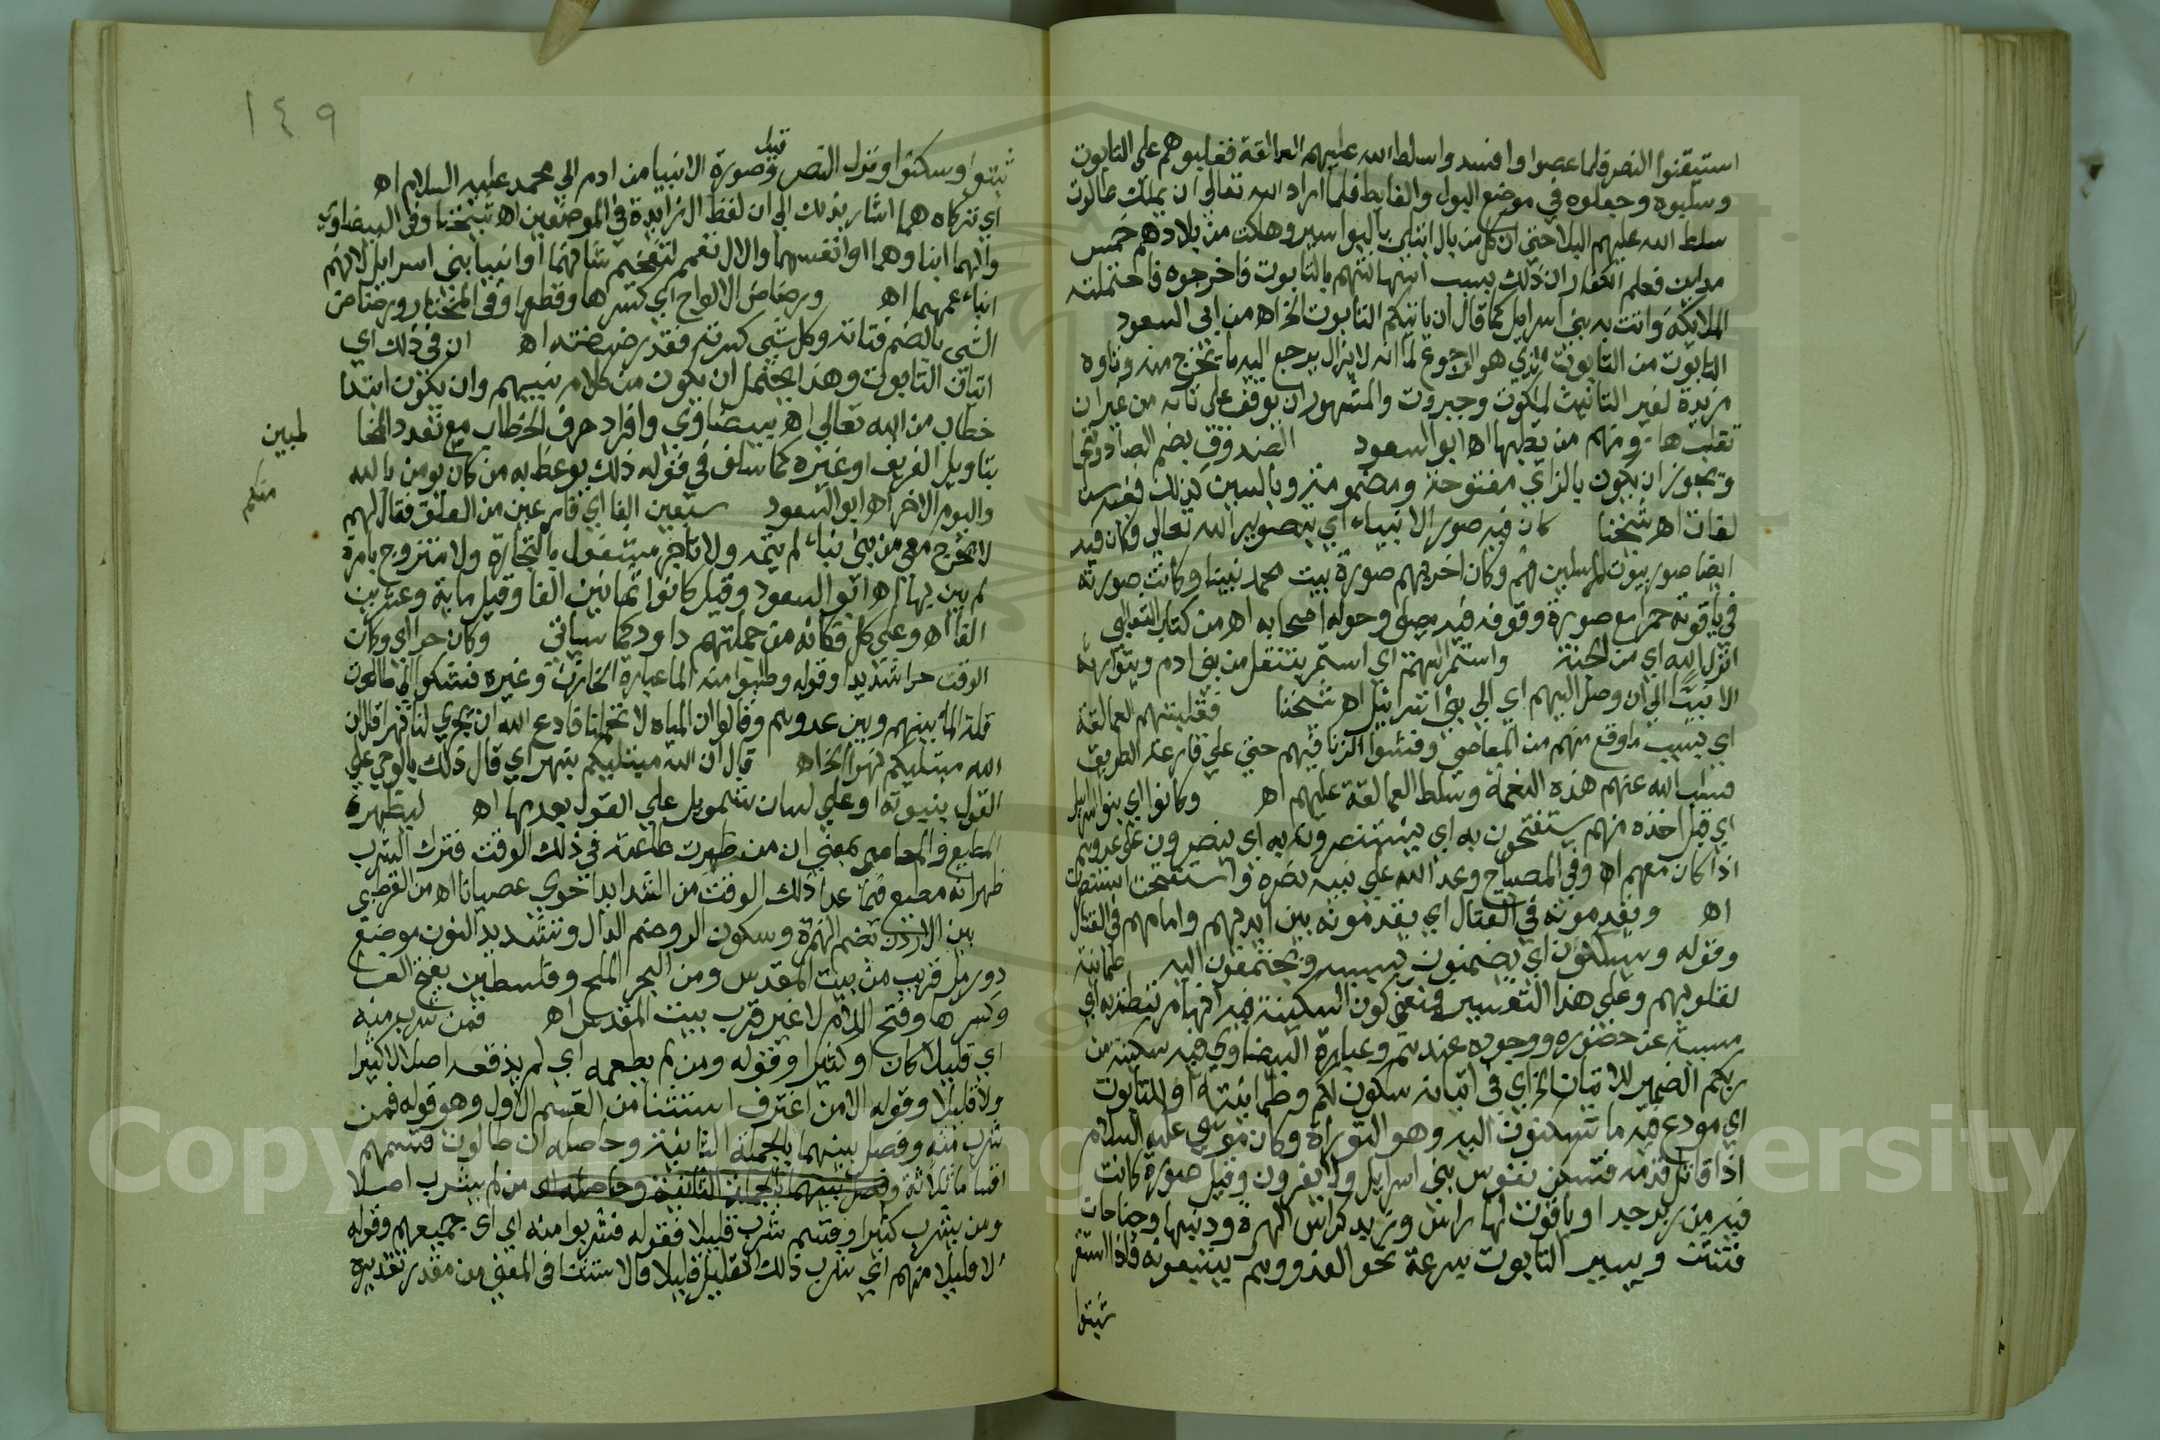 استيقنوا النصر فلما عصوا وافسدوا سلط الله عليهم العمالقة فغلبوهم على التابوت
وسلبوه وجعلوه في موضع البول والغايط فلما اراد الله تعالى ان يملك طالوت
سلط الله عليهم البلا حتى ان كل من بال ابتلى بالبواسير وهلكت من بلادهم خمس
مداين فعلم الكفار ان ذلك بسبب استهانتهم بالتابوت فاخرجوه فاحتملته
الملايكة واتت به بني اسرايل كما قال ان ياتيكم التابوت الخ اه من ابي السعود
التابوت من التابوت الذي هو الرجوع لما انه لا يزال يرجع اليه ما يخرج منه وتاوه
مزيدة لغير التانيث لملكوت وجبروت والمشهور ان يوقف على تائه من غير ان
تقلب ها ومنهم من يقلبها اه ابو السعود الصندوق بضم الصاد وفتحها
ويجوز ان يكون بالزاي مفتوحة ومضمومة وبالسين كذلك ففيه ست
لغات اه شيخنا كان فيه صور الانبياء اي بتصوير الله تعالى وكان فيه
ايضا صور بيوت المرسلين منهم وكان اخرهم صورة بيت محمد نبينا وكانت صورته
في ياقوتة حمرا مع صورة وقوفه فيه يصلي وحوله اصحابه اه من كتاب الثعالبي
انزله الله اي من الجنة واستمر اليهم اي استمر يتنقل من بني ادم ويتوارثه
الانبيا الى ان وصل اليهم اي الى بني اسرائيل اه شيخنا فغلبتهم العمالقة
اي بسبب ما وقع منهم من المعاصي وفشوا الزنا فيهم حتى على قارعة الطريق
فسلب الله عنهم هذه النعمة وسلط العمالقة عليهم اه وكانوا اي بنو اسرايل
اي قبل اخذه منهم يستفتحون به اي يستنصرون به اي ينصرون على عدوهم
اذا كان معهم اه وفي المصباح وعد الله على نبيه نصره واستفتحت استنصرت
اه ويقدمونه في القتال اي يقدمونه بين ايديهم وامامهم في القتال
وقوله ويسكنون اي يضمنون بسببه ويجتمعون اليه طمانينة
لقلوبهم وعلى هذا التفسير فمعنى كون السكينة فيه انها مرتبطة به اي
مسببة عن حضوره ووجوده عندهم وعبارة البيضاوي فيه سكينة من
ربكم الضمير للاتيان اي في اتيانه سكون لكم وطمانينة او للتابوت
اي مودع فيه ما تسكنون اليه وهو التوراة وكان موسى عليه السلام
اذا قاتل قدمه فتسكن نفوس بني اسرايل ولا يفرون وقيل صورة كانت
فيه من زبرجد او ياقوت لها راس وذنب كراس الهرة وذنبها وجناحان
فتئن ويسير التابوت بسرعة نحو العدو وهم يتبعونه فاذا استقر
ثبتوا
١٤٩
ثبتوا وسكنوا ونزل النصر وقيل صورة الانبيا من ادم الى محمد عليه السلام اه
اي تركاه هما اشار بذلك الى ان لفظ ال زايدة في الموضعين اه شيخنا وفي البيضاوي
والهما ابناوهما او انفسهما والال مقحم لتفخيم شانهما او انبيا بني اسرايل لانهم
ابناء عمهما اه ورضاض الالواح اي كسرها وقطعها وفي المختار ورضاض
الشي بالضم فتاته وكل شي كسرته فقد رضضته اه ان في ذلك اي
اتيان التابوت وهذا يحتمل ان يكون من كلام نبيهم وان يكون ابتدا
خطاب من الله تعالى اه بيضاوي وافراد حرف الخطاب مع تعدد المخا
لمبين
بتاويل الفريق او غيره كما سلف في قوله ذلك يوعظ به من كان يومن بالله
منكم
واليوم الاخر اه ابو السعود سبعين الفا اي فارغين من العلق فقال لهم
لا يخرج معي من بنى بناء لم يتمه ولا تاجر مشغول بالتجارة ولا متزوج بامرة
لم يبن بها اه ابو السعود وقيل كانوا ثمانين الفا وقيل ماية وعشرين
الفا اه وعلى كل فكانه من جملتهم داود كما سياتي وكان حرا اي وكان
الوقت حرا شديدا وقوله وطلبوا منه الما عبارة الخازن وغيره فشكوا الى طالوت
قلة الما بينهم وبين عدوهم وقالوا ان المياه لا تحملنا فادع الله ان يجري لنا نهرا قال ان
الله مبتليكم بنهر الخ اه قال ان الله مبتليكم بنهر اي قال ذلك بالوحي على
القول بنبوته او على لسان شمويل على القول بعدمها اه ليظهر
المطيع والعاصي بمعنى ان من ظهرت طاعته في ذلك الوقت فترك الشرب
ظهر انه مطيع فيما عدا ذلك الوقت من
بين الاردن بضم الهمزة وسكون الرا وضم الدال وتشديد النون موضع
ذو رمل قريب من بيت المقدس ومن البحر الملح وفلسطين بفتح الفا
وكسرها وفتح اللام لا غير قرب بيت المقدس اه فمن شرب منه
اي قليلا كان او كثيرا وقوله ومن لم يطعمه اي لم يذقه اصلا لا كثيرا
ولا قليلا وقوله الا من اغترف استثنا من القسم الاول وهو قوله فمن
شرب منه وفصل بينهما بالجملة الثانية وحاصله ان طالوت قسمهم
اقساما ثلاثة وفصل بينهما بالجملة الثانية وحاصله ان من لم يشرب اصلا
ومن يشرب كثيرا وقسم شرب قليلا فقوله فشربوا منه اي اي جميعهم وقوله
الا قليلا منهم اي شرب ذلك القليل قليلا فالاستثنا في المعنى من مقدر تقديره